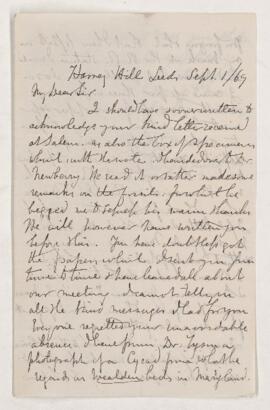 Harvey Hill Leeds Sept. 1/69
My Dear Sir
I should have sooner written to
acknowledge your kind letter received
at Salem. as also the box of specimens
which with the note I handed over to Dr
Newberry. He read it & after made some
remarks on the fossils. for which he
begged me to express his warm thanks
He will however have written you
before this. You have doubtless got
the papers which I sent you from
time to time & have learned all about
our meeting. I cannot tell you
all the kind messages I had for you
Everyone regretted your unavoidable
absence. I have from Dr. Tyson a
photograph of a Cycad from what he
regards as Wealden beds in Maryland.